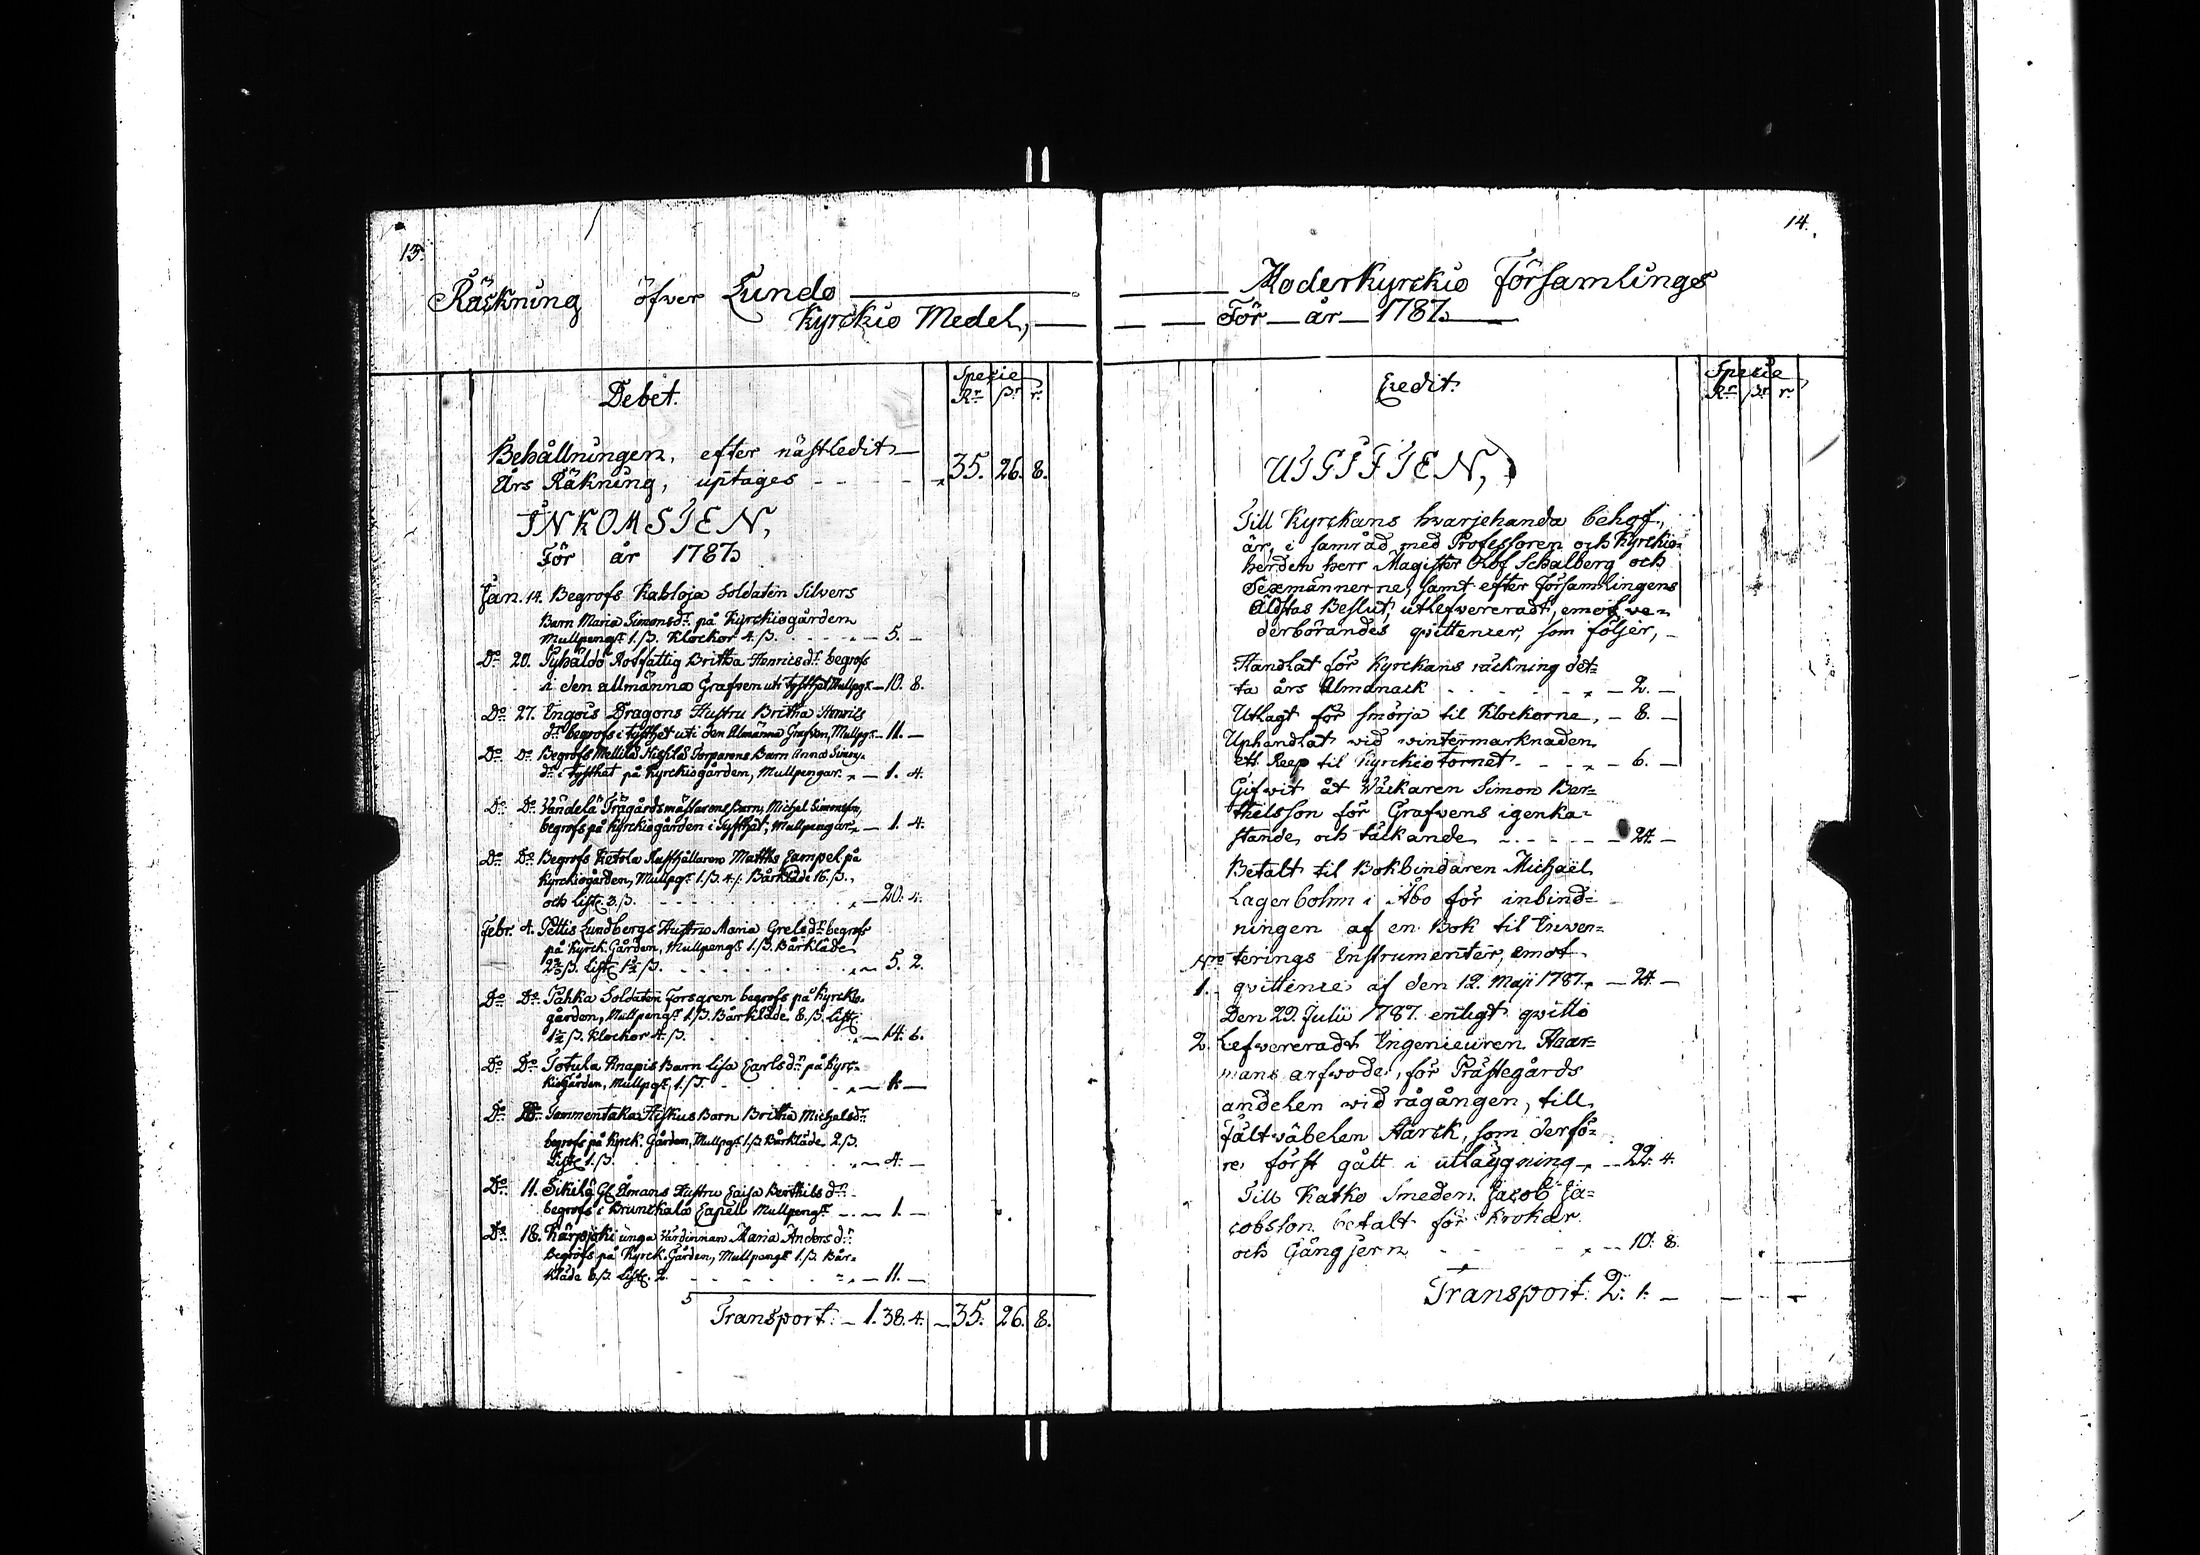 13.
Räckning öfver Lundo
Kyrckio Medel,
Debet.
Specie
Rr ßr r.
Behållningen, efter nästledit
Års Räkning, uptages 35. 26. 8.
INKOMSTEN,
För år 1787.
Jan. 14. Begrofs Kabloja Soldaten Silvers
Barn Maria Simonsdr. på Kyrckiogården
Mullpengr 1.ß. Klockor 4.ß. — 5. —
Do 20. Tyhäldö Rotfattig Britha Henricsdr. begrofs
i den allmänna Grafven uti tysthet Mullpgr — 10. 8.
Do 27. Ingois Dragons Hustru Britha Henrils
dr. begrofs i tysthet uti den Almänna Grafven, Mullpgr — 11. —
Do Do Begrofs Mellilä Torparens Barn Anna Simons
dr. i tysthet på Kyrckiogården, Mullpengar. — 1. 4.
Do Do Vändelä Trägårdsmästarens Barn, Michel Simonsson,
begrofs på Kyrckiogården i Tysthet; Mullpengar — 1. 4.
Do Do Begrofs Ketola Rusthållaren Matths Campel på
Kyrckiogården, Mullpgr 1.ß. 4. Bårkläde 16.ß.
och List. 3.ß. — 20. 4.
Febr. 4. Pettis Lundbergs Hustru Maria Grelsdr. begrofs
på Kyrck. Gården, Mullpengr. 1.ß. Bårkläde
List. 1½ß. — 5. 2.
Do Do Pahka Soldaten Forsgren begrofs på Kyrckio-
gården, Mullpengr. 1.ß. Bårkläde 8.ß. List.
1½ß. Klockor 4.ß. — 14. 6.
Do Do Totula Knapis Barn Lisa Carlsdr. på Kyrc-
kiogården, Mullpgr. 1.ß. — 1. —
Do Do Tammentaka Heikus Barn Britha Michelsdr.
begrofs på Kyrck. Gården, Mullpgr. 1.ß. Bårkläde 2.ß.
List. 1.ß. — 4. —
Do 11. Sikilä Gl. Elmans Hustru Caisa Berthilsdr.
begrofs i Brunckala Capell Mullpengr. — 1. —
Do 18. Kärpijoki unga värdinnan Maria Andersdr.
Begrofs på Kyrck. Gården, Mullpengr. 1.ß. Bår-
kläde 8.ß. List. 2. — 11. —
Transport. — 1. 38. 4. — 35. 26. 8.
14.
Moderkyrckio Församlings
För år 1787.
Credit.
Specie
Rr ßr r.
UTGIFTEN,
Till Kyrckans hvarjehanda behof,
är, i samråd med Professoren och Kyrckio-
herden herr Magister Olof Schalberg och
Sexmännerne, samt efter Församlingens
Äldstas Beslut, utlefvereradt, emot ve-
derbörandes qvittencer, som följer,
Handlat för Kyrckans räckning det-
ta års Almanack — 2. —
Utlagt för smörja til Klockorne, — 8. —
Uphandlat vid vintermarknaden
ett Reep til Kyrckiotornet — 6. —
Gifwit åt Wäckaren Simon Ber-
thelsson för Grafvens igenka-
stande och täckande — 24. —
Betalt til Bokbindaren Michael
Lagerbohm i Åbo för inbind-
ningen af en Bok til Inven-
Nro terings Instrumenter, emot
1. qvittence af den 12. Maji 1787. — 24. —
Den 29. Julii 1787. enligt qvitto
2. Lefvereradt Ingenieuren Haar-
mans arfvode, för Prästegårds
andelen vid rågången, till
Fältväbelen Aarck, som derfö-
re först gått i utläggning, — 22. 4.
Till Katko Smeden Jacob Ja-
cobsson betalt för Krokar
och Gångjern — 10. 8.
Transport 2. 1. —